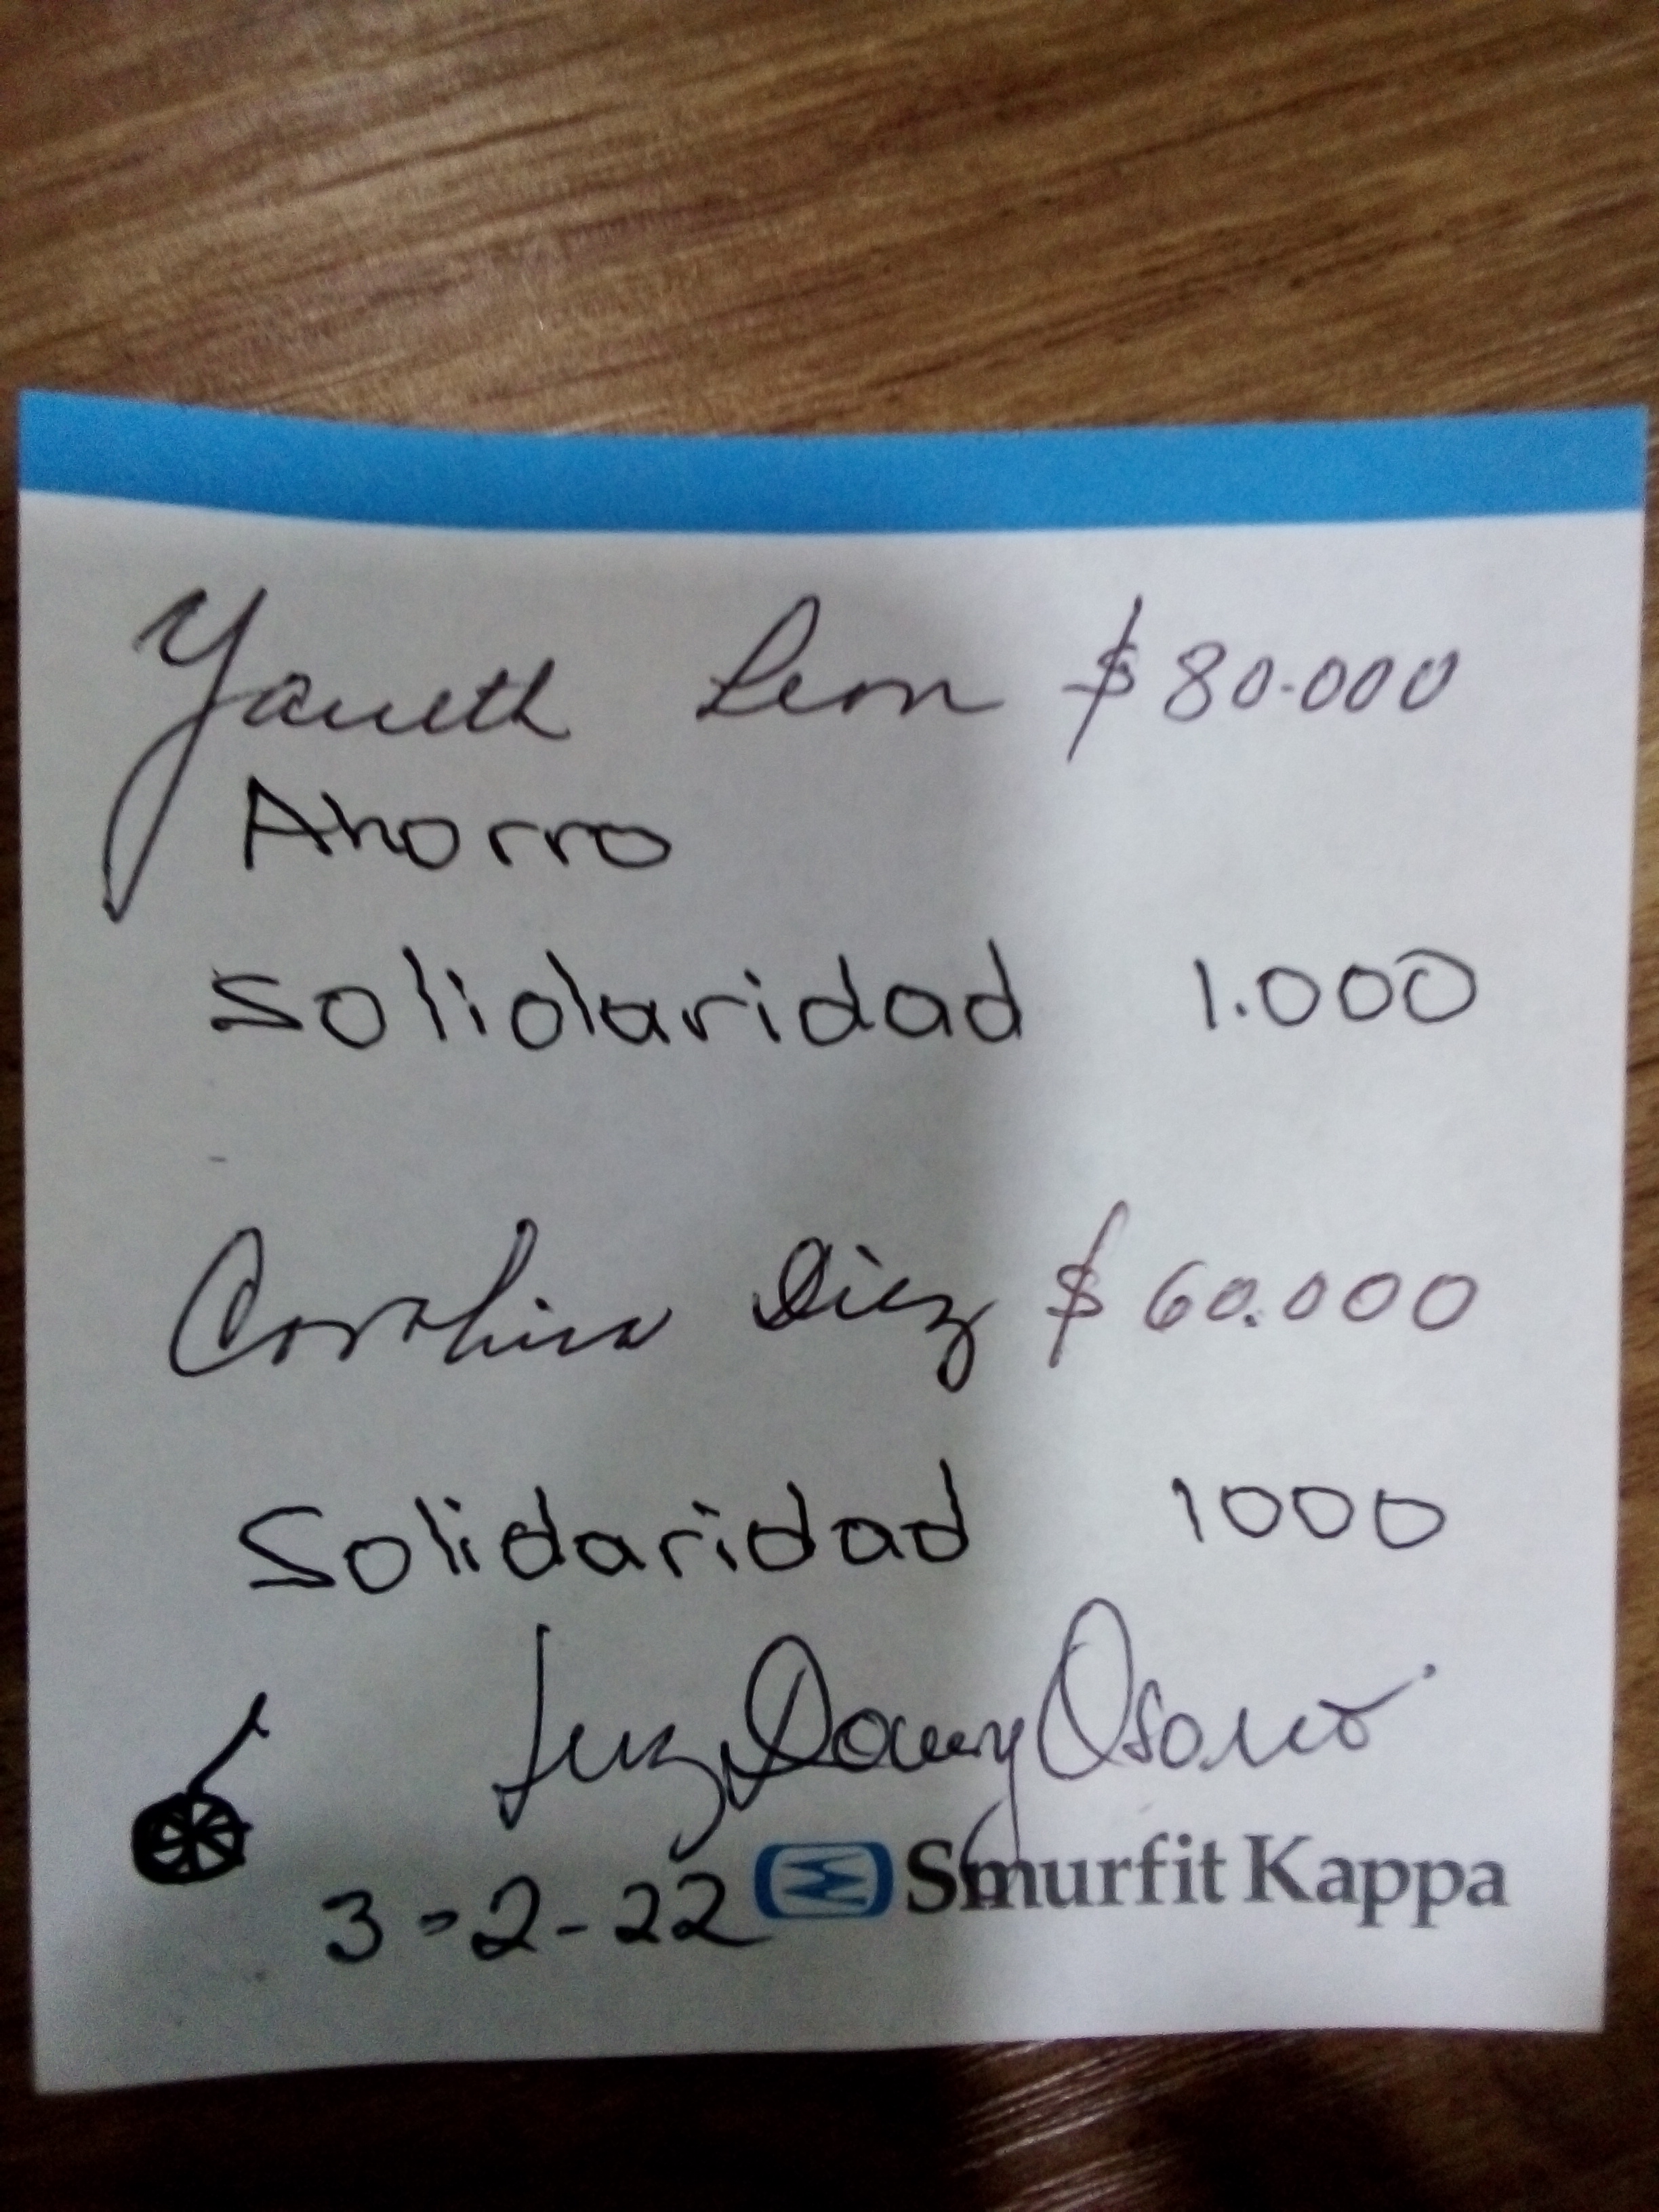 Yaneth Leon $ 80.000
Ahorro
Solidaridad 1.000
Carolina Diez $ 60.000
Solidaridad 1000
Luz Dany Osorio
Smurfit Kappa
3-2-22